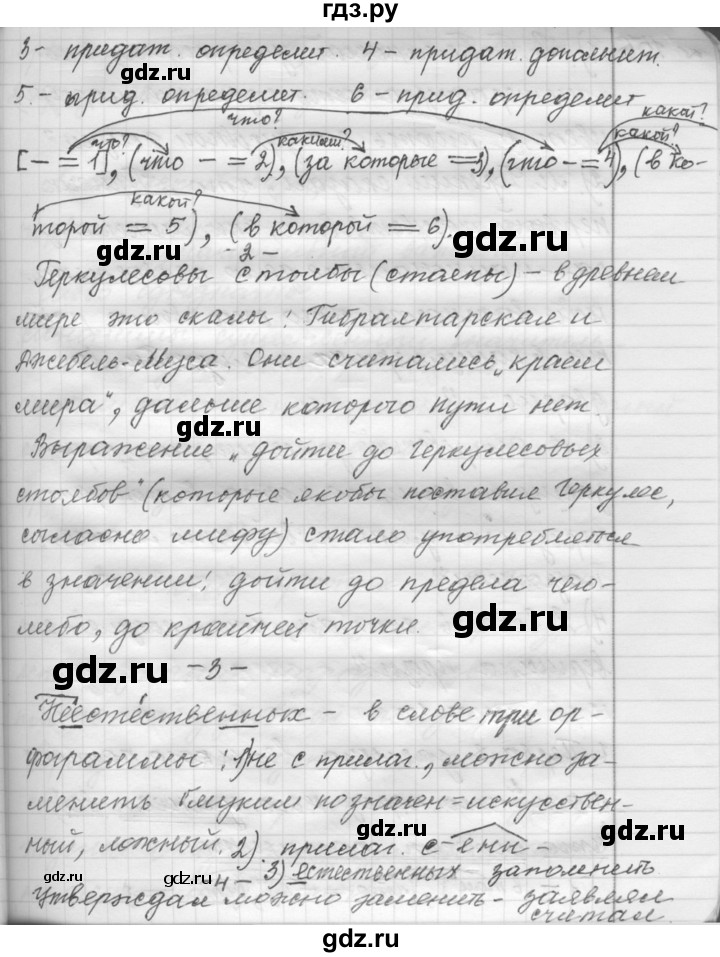 гдз.ру
3 - придат. определит. 4 - придат. дополнит.
5. - прид. определит. 6 - прид. определит
что? какой?
что? каким? какой?
[- = 1], (что - = 2), (за которые = 3), (что - = 4), (в ко-
какой?
торой = 5), (в которой = 6).
- 2 -
Геркулесовы столбы (стелы) - в древнем
мире это скалы: Гибралтарская и
Джебель-Муса. Они считались „краем
мира", дальше которого пути нет.
Выражение „дойти до Геркулесовых
столбов" (которые якобы поставил Геркулес,
согласно мифу) стало употребляться
в значении: дойти до предела чего-
либо, до крайней точки.
- 3 -
Неестественных - в слове три ор-
фограммы: 1) не с прилаг., можно за-
менить близким по значен = искусствен-
ный, ложный. 2) прилаг. с -енн-
3) естественных запомнить
- 4 -
Утверждал можно заменить - заявлял
считал.
gdz.ru
gdz.ru
gdz.ru
gdz.ru
gdz.ru
gdz.ru
gdz.ru
gdz.ru
gdz.ru
gdz.ru
gdz.ru
gdz.ru
gdz.ru
gdz.ru